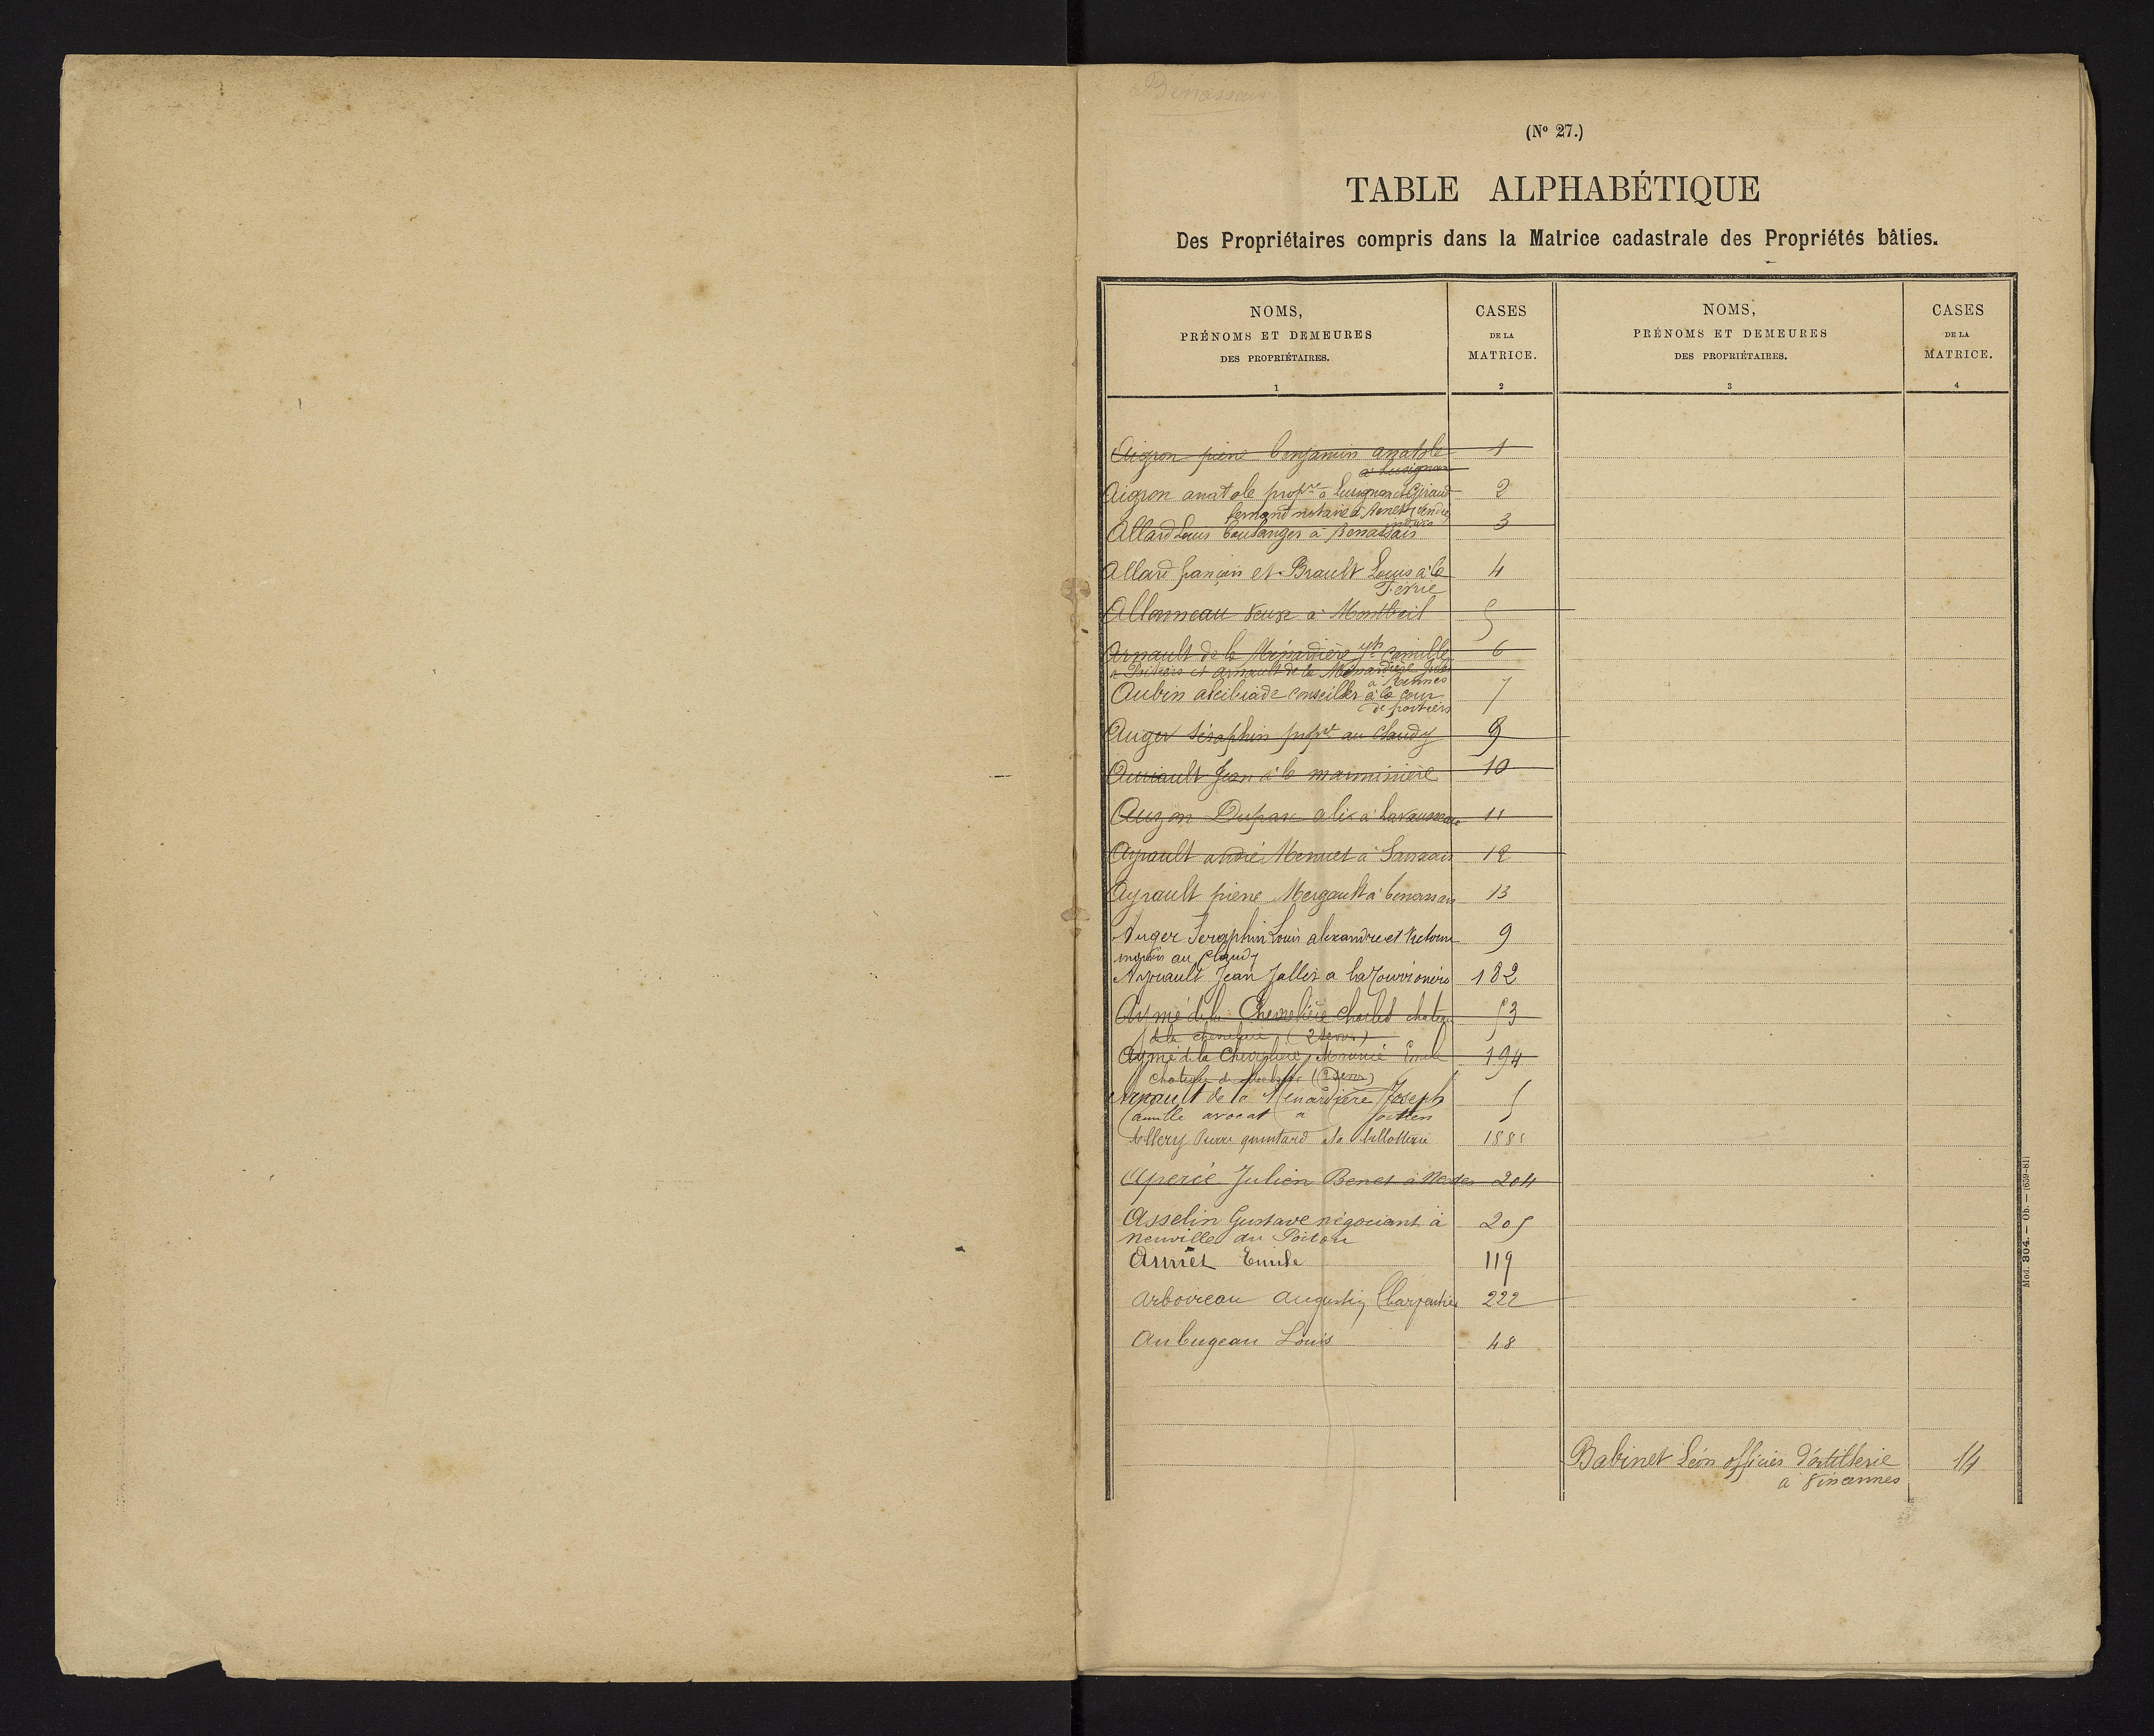 Benassais
(Nº 27.)
TABLE ALPHABÉTIQUE
Des Propriétaires compris dans la Matrice cadastrale des Propriétés bâties.
NOMS, PRÉNOMS ET DEMEURES DES PROPRIÉTAIRES. CASES DE LA MATRICE. NOMS, PRÉNOMS ET DEMEURES DES PROPRIÉTAIRES. CASES DE LA MATRICE.
1 2 3 4
Aigron pierre benjamin anatole 1
à Lusignan
Aigron anatole propre à Lusignan et Giraud 2
fernand notaire à
Allard Louis boulanger à Benassais 3
Allard françois et Brault Louis à la 4
Allonneau veuve à Montbeil 5
Arnault de la Ménardière jph camille 6
à Poitiers et arnault de la Ménardière
à Rennes
Aubin alcibiade conseiller à la cour 7
de poitiers
Auger Séraphin propre au Chaudy 9
Auriault Jean à la 10
Auzon Duparc alix à Lavausseau 11
Ayrault andré Menuet à Sanxais 12
Ayrault pierre Mergault à benassais 13
Auger Seraphin Louis alexandre et Victorine 9
au Chaudy
Jean Jallet a 182
Aymé de la Chevrelière Charles chateau 53
de la chevrelière (2 )
Aymé de la Chevrelière Emile 194
chateau de
Arnault de la Menardière Joseph 5
Camille avocat a Poitiers
Allery Pierre quintard
Apercé Julien Benet à 204
Asselin Gustave négociant à 205
neuville du Poitou
Emile 119
Arboireau Augustin Charpentier 222
Aubugeau Louis 48
Babinet Léon officier d'artillerie 14
à Vincennes
Mod. 304. — Ob. — (659-81)